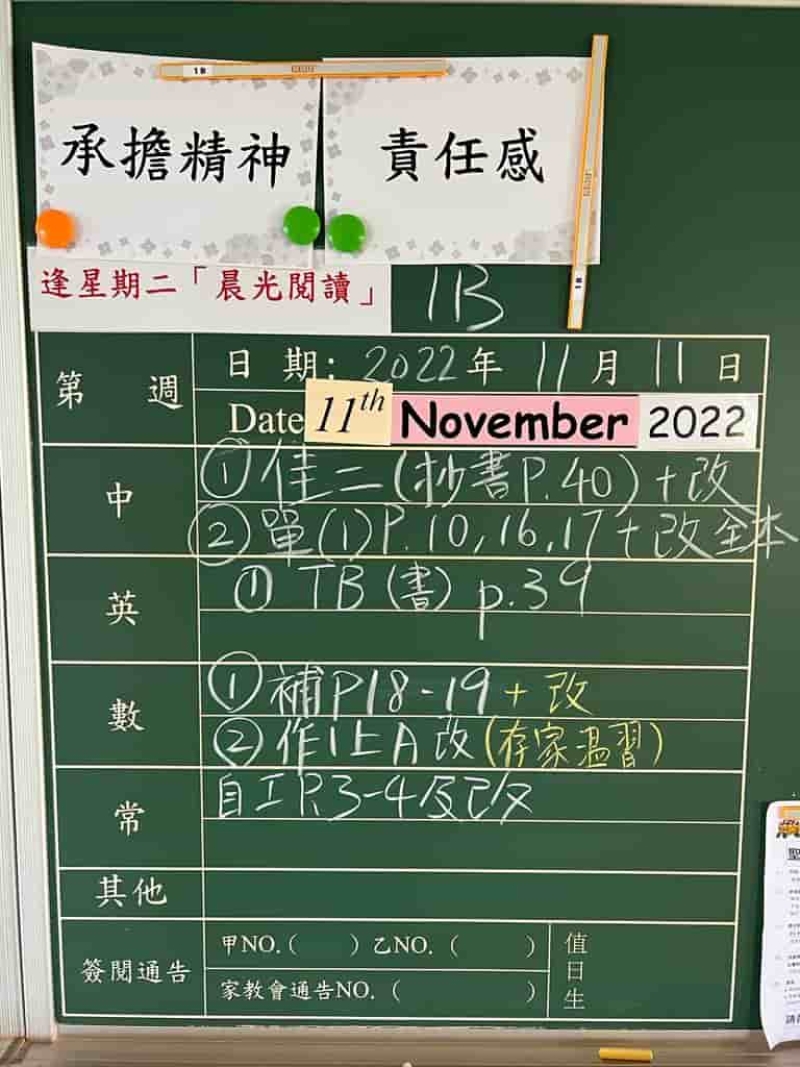 承擔精神
責任感
逢星期二「晨光閱讀」
1B
第 週
日 期: 2022年 11月 11日
Date 11th November 2022
中
①佳二(抄書P.40)+改
②單(1)P.10,16,17+改全本
英
① TB(書) p.39
數
①補P18-19+改
②作1上A改(存家溫習)
常
自工P.3-4及改
其他
簽閱通告
甲NO.( ) 乙NO.( )
家教會通告NO.( )
值日生